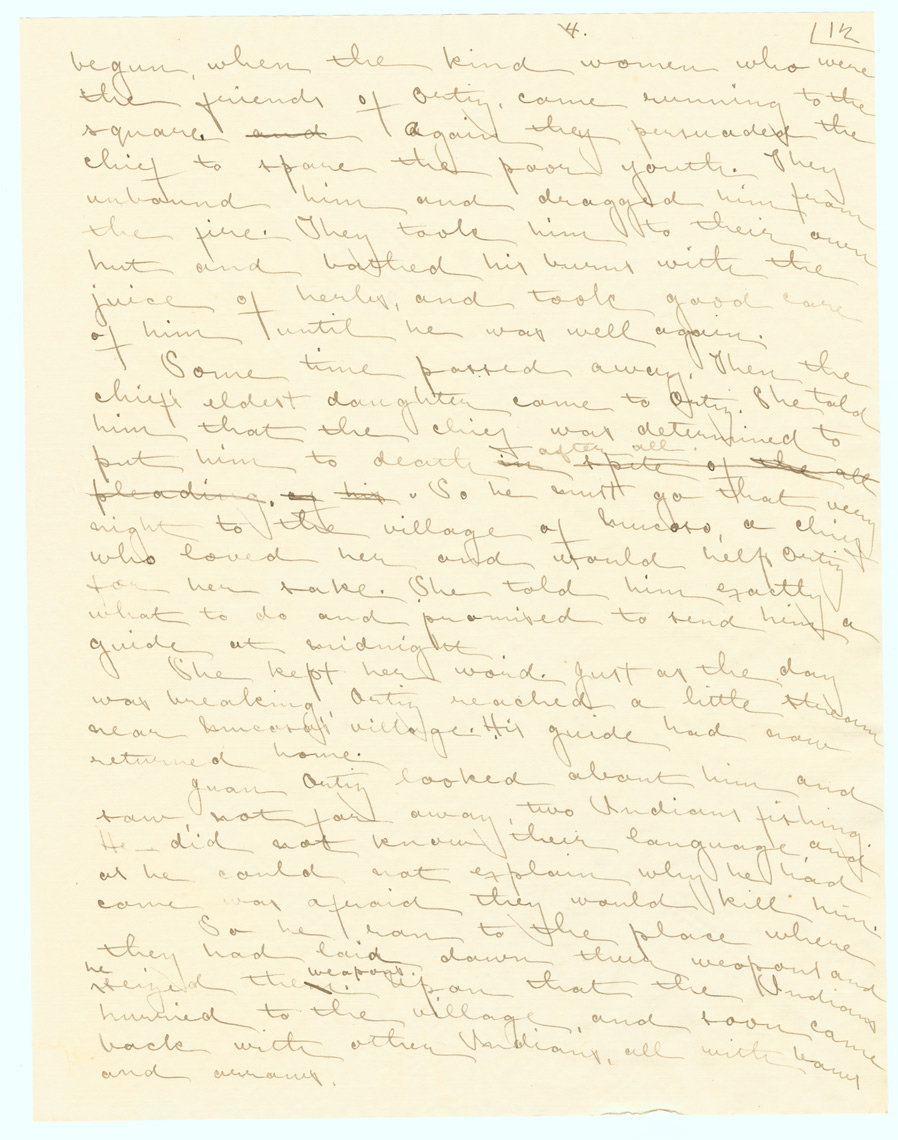 4. 112
begun, when the kind women who were
the friends of Ortiz, came running to the
square. and Again they persuaded the
chief to spare the poor youth. They
unbound him and dragged him from
the fire. They took him to their own
hut and bathed his burns with the
juice of herbs, and took good care
of him until he was well again.
Some time passed away. Then the
chief's eldest daughter came to Ortiz. She told
him that the chief was determined to
after all.
put him to death in spite of the all
pleading, as his . So he must go that very
night to the village of Mucoso, a chief
who loved her and would help Ortiz
for her sake. She told him exactly
what to do and promised to send him a
guide at midnight
She kept her word. Just as the day
was breaking, Ortiz reached a little stream
near Mucoso's village. His guide had now
returned home.
Juan Ortiz looked about him and
saw, not far away, two Indians fishing.
He did not know their language and
as he could not explain why he had
come was afraid they would kill him.
So he ran to the place where
they had laid down their weapons and
he weapons.
seized the Upon that the Indians
hurried to the village, and soon came
back with other Indians, all with bows
and arrows.